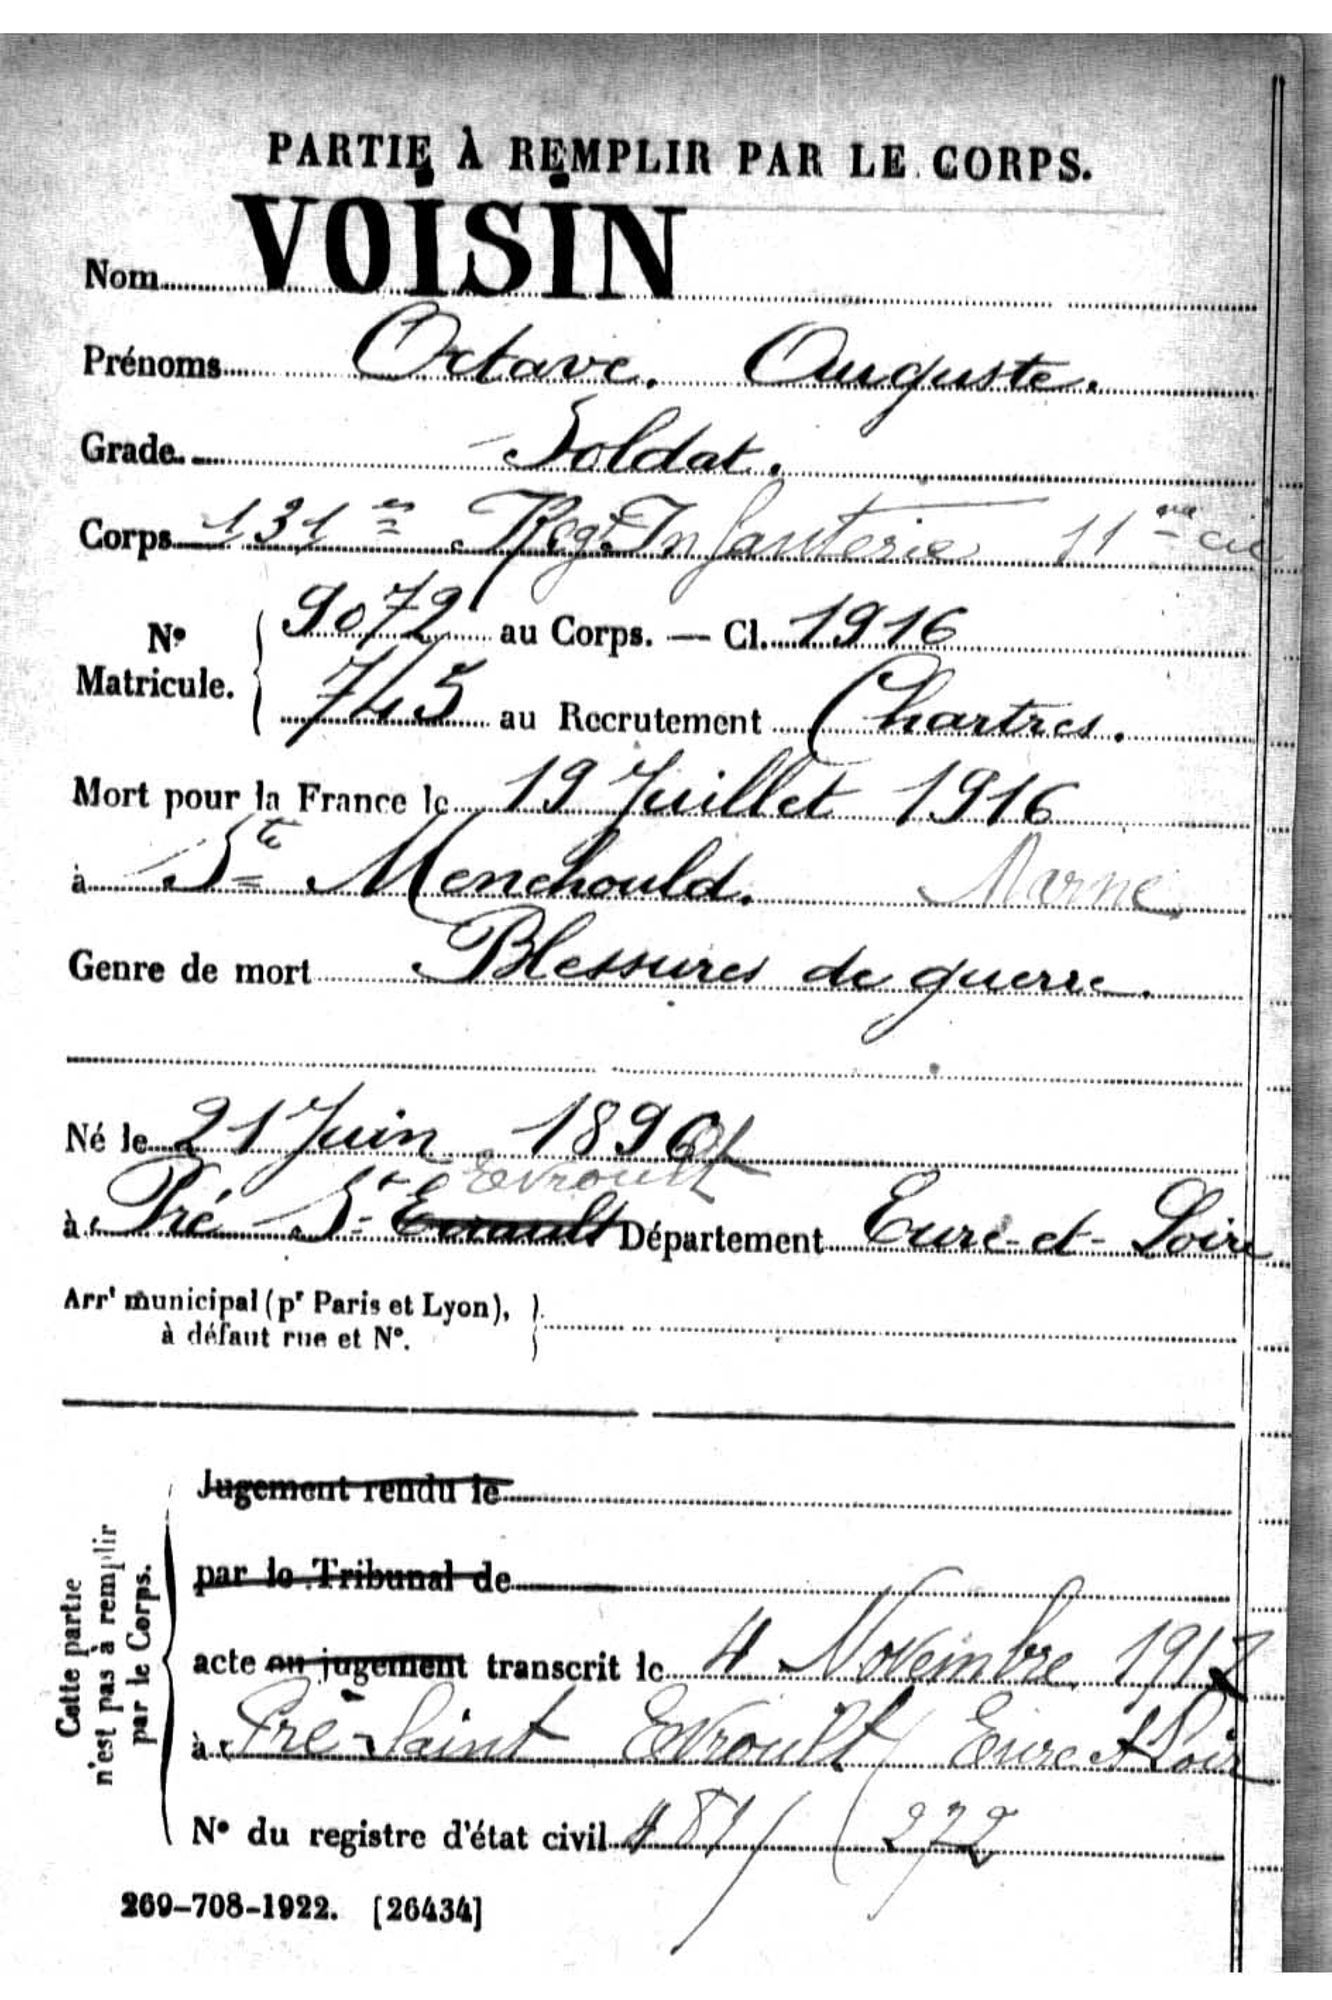 PARTIE À REMPLIR PAR LE CORPS.
Nom VOISIN
Prénoms Octave. Auguste.
Grade Soldat.
Corps 131e Regt Infanterie 11me cie
No Matricule. 9072 au Corps. — Cl. 1916
745 au Recrutement Chartres.
Mort pour la France le 19 Juillet 1916
à Ste Menehould. Marne
Genre de mort Blessures de guerre.
Né le 21 Juin 1896
Evroult
à Pré St Département Eure-et-Loire
Arrt municipal (pr Paris et Lyon),
à défaut rue et No.
Cette partie
n'est pas à remplir
par le Corps.
Jugement rendu le
par le Tribunal de
acte ou jugement transcrit le 4 Novembre 1917
à Pré-Saint Evroult (Eure et Loir
No du registre d'état civil 272
269-708-1922. [26434]